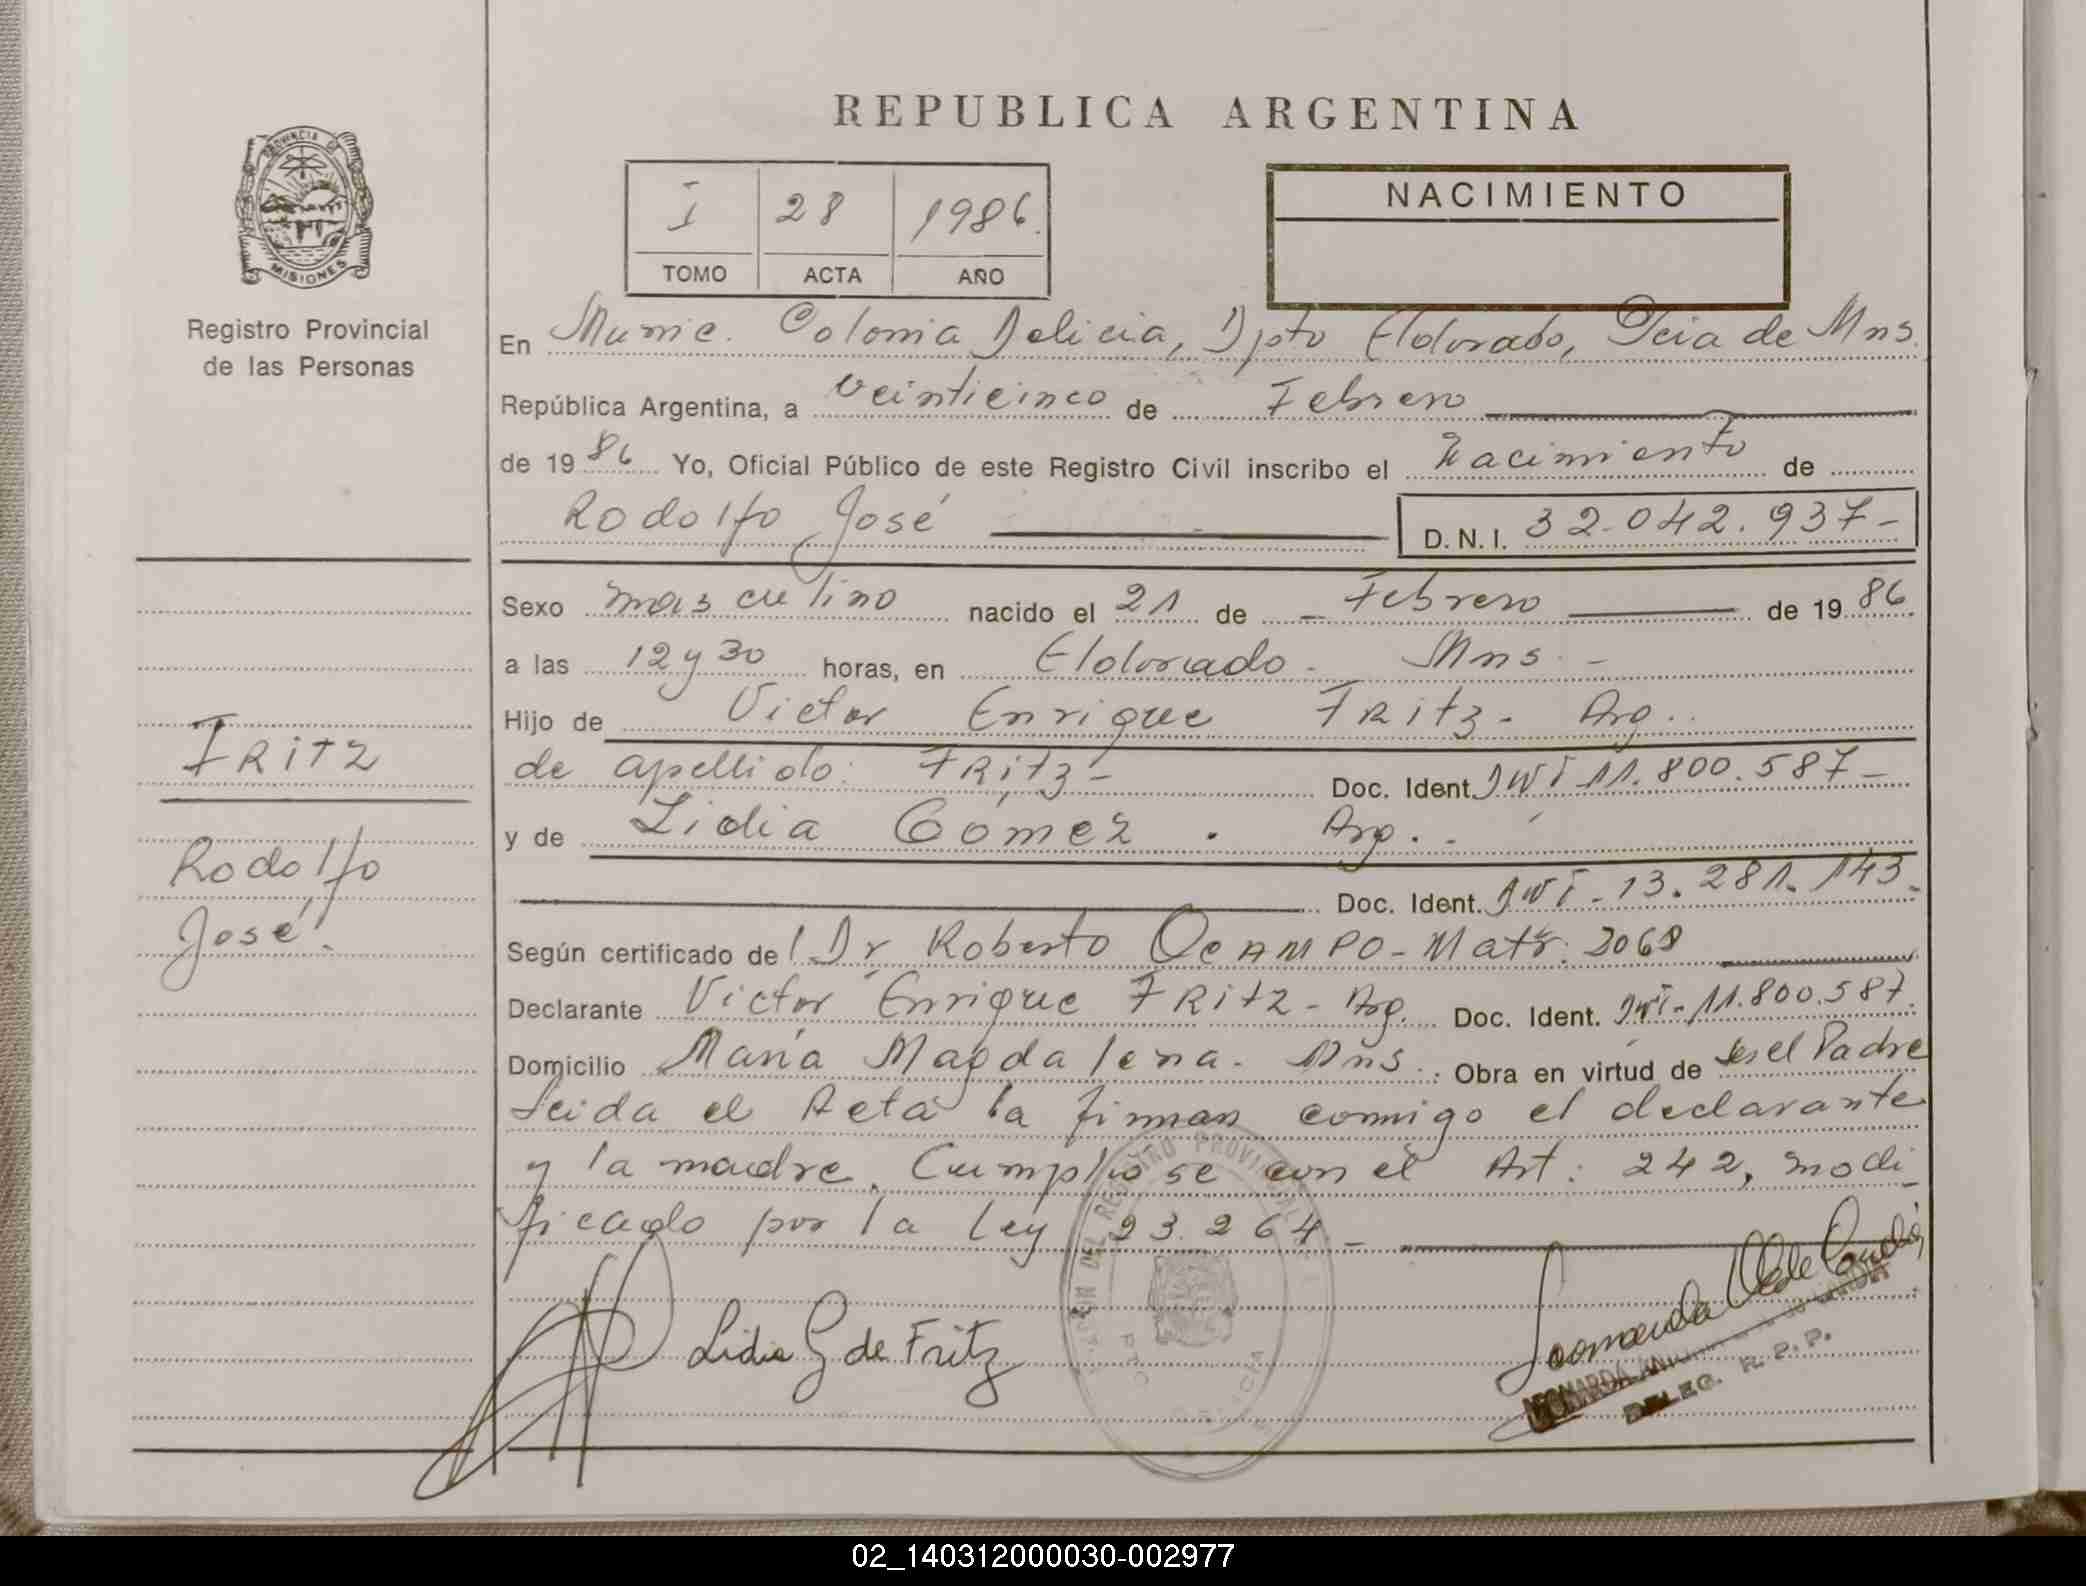 REPUBLICA ARGENTINA
PROVINCIA DE
MISIONES
Registro Provincial
de las Personas
I 28 1986.
TOMO ACTA AÑO
NACIMIENTO
En Munic. Colonia Delicia, Dpto Eldorado, Pcia de Mns.
República Argentina, a veinticinco de Febrero
de 1986 Yo, Oficial Público de este Registro Civil inscribo el Nacimiento de
Rodolfo José D.N.I. 32.042.937-
Sexo masculino nacido el 21 de - Febrero de 1986.
a las 12 y 30 horas, en Eldorado - Mns. -
Hijo de Victor Enrique FRitz - Arg.
de apellido: FRitz - Doc. Ident. DNI 11.800.587-
y de Lidia Gómez . Arg. -
Doc. Ident. DNI - 13.281.143.
Según certificado de Dr Roberto OcAMPO - Matr: 3068
Declarante Victor Enrique FRitz - Arg. Doc. Ident. DNI - 11.800.587.
Domicilio María Magdalena - Mns. Obra en virtud de ser el Padre
Leida el Acta la firman conmigo el declarante
y la madre. Cumplióse con el Art: 242, modi
ficado por la Ley 23.264 -
FRitz
Rodolfo
José.
Lidia G de Fritz
DEL REGISTRO PROVINCIAL
LEONARDA
DELEG. R.P.P.
02_140312000030-002977